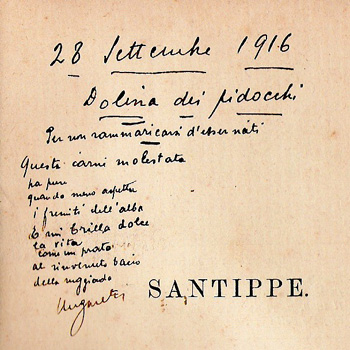 28 Settembre 1916
Dolina dei pidocchi
Per non rammaricarsi d'esser nati
Queste carni molestate
ha pure
quando meno aspetta
i fremiti dell'alba
E mi brilla dolce
la vita
come un prato
al rinvenuto bacio
della rugiada
Ungaretti
SANTIPPE.